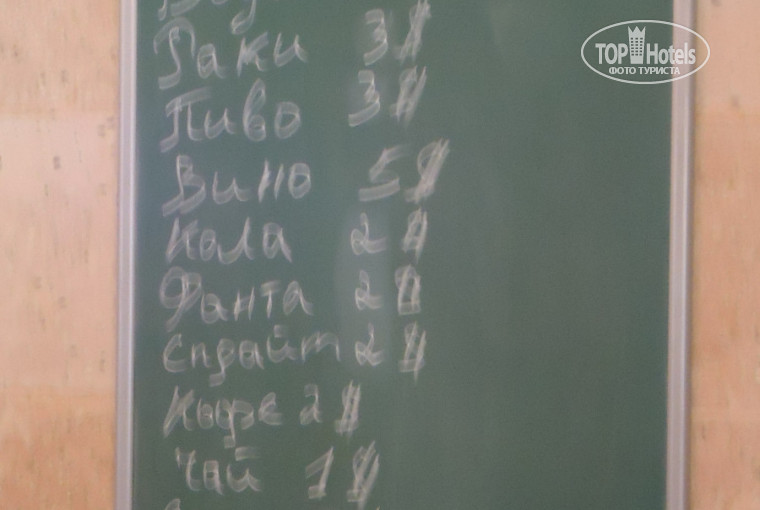 TOP Hotels
ФОТО ТУРИСТА
Раки 3$
Пиво 3$
Вино 5$
Кола 2$
Фанта 2$
Спрайт 2$
Кофе 2$
Чай 1$